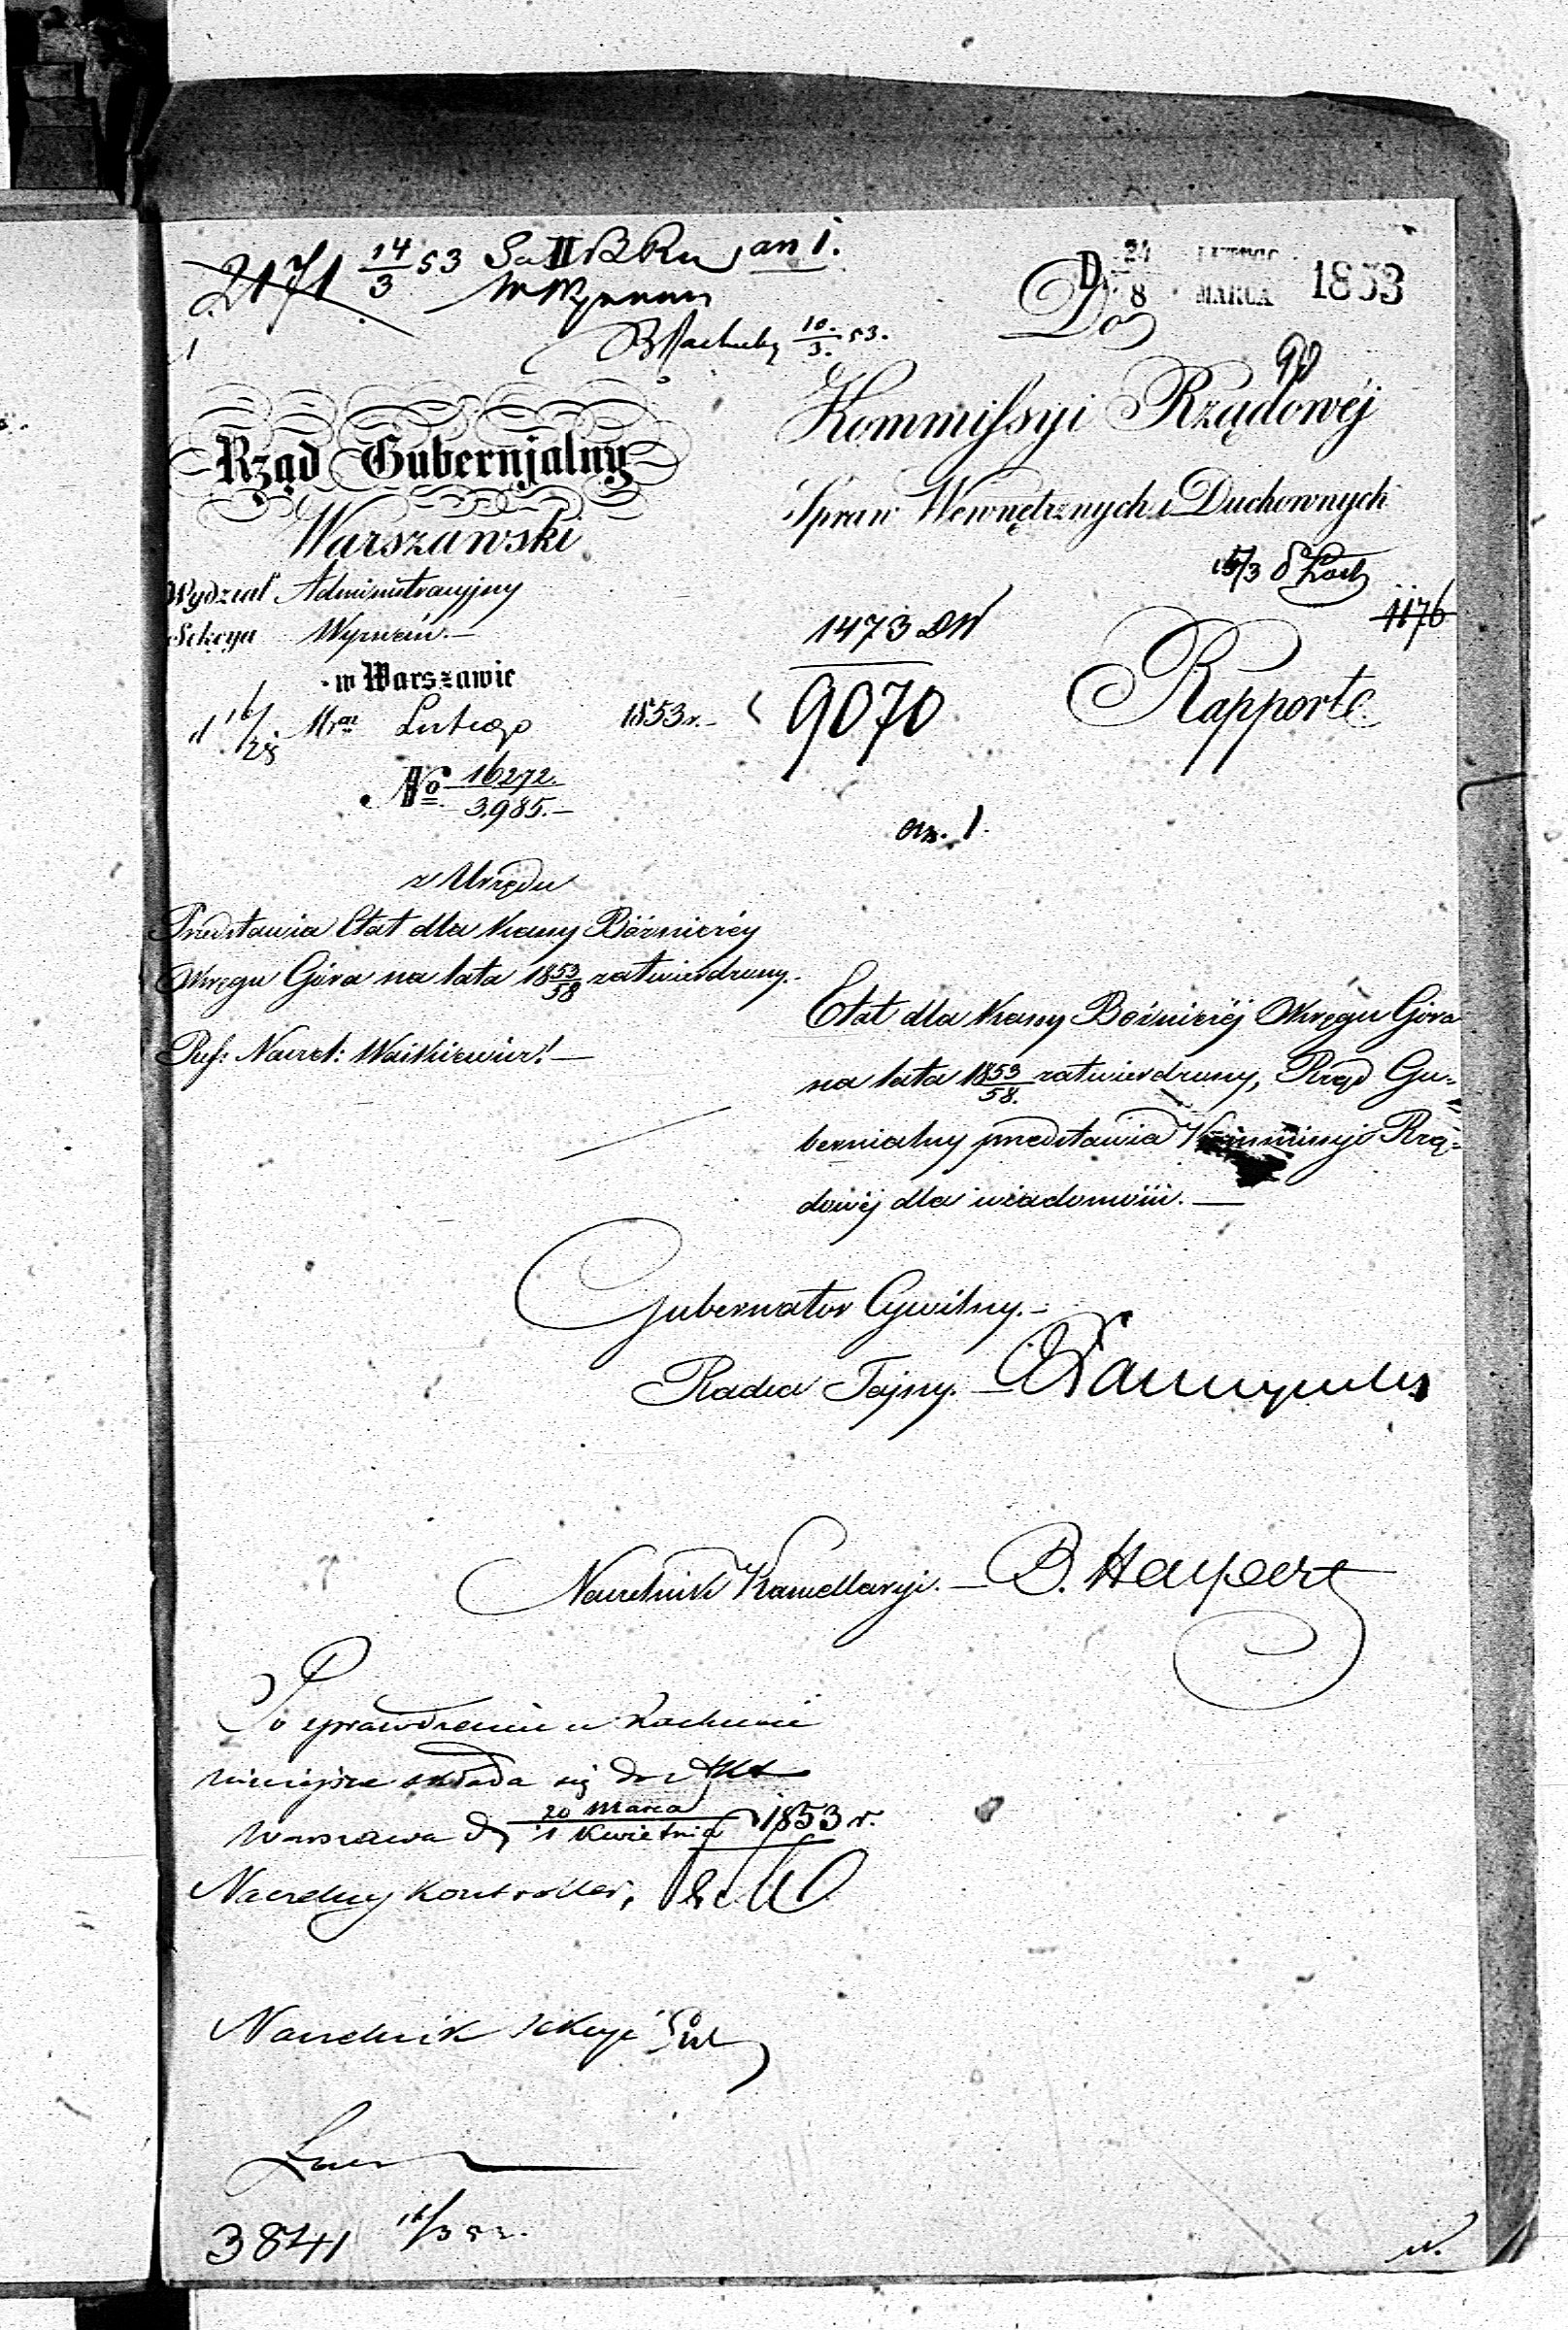 2171 14/3 53 an 1.
10/3 53.
D. 24 LUTEGO
8 MARCA 1853
Do
90
Kommissyi Rządowéj
Spraw Wewnętrznych i Duchownych
Rząd Gubernjalny
Warszawski
Wydział Administracyjny
Sekcya Wyznań.—
w Warszawie
d 16/28 Mca Lutego 1853 r.—
No 16272.
3985.—
15/3
1176
1473 DW
9070
Rapport
an. 1.
z Urzędu
Przedstawia Etat dla Kassy Bóżniczéy
Okręgu Góra na lata 1853/58 zatwierdzony.
Ref: Naczel: Waitkiewicz!—
Etat dla Kassy Bóżniczéj Okręgu Góra
na lata 1853/58. zatwierdzony, Rząd Gu-
bernialny przedstawia Kommissyi Rzą-
dowéj dla wiadomości.—
Gubernator Cywilny.—
Radca Tajny.—
Naczelnik Kancellaryi.— B. Halpert
Po sprawdzeniu w Rachunku
niniejsze składa się do Akt
Warszawa d 20 Marca
1 Kwietnia 1853 r.
Naczelny Kontroller,
Naczelnik Sekcyi
3841 16/3